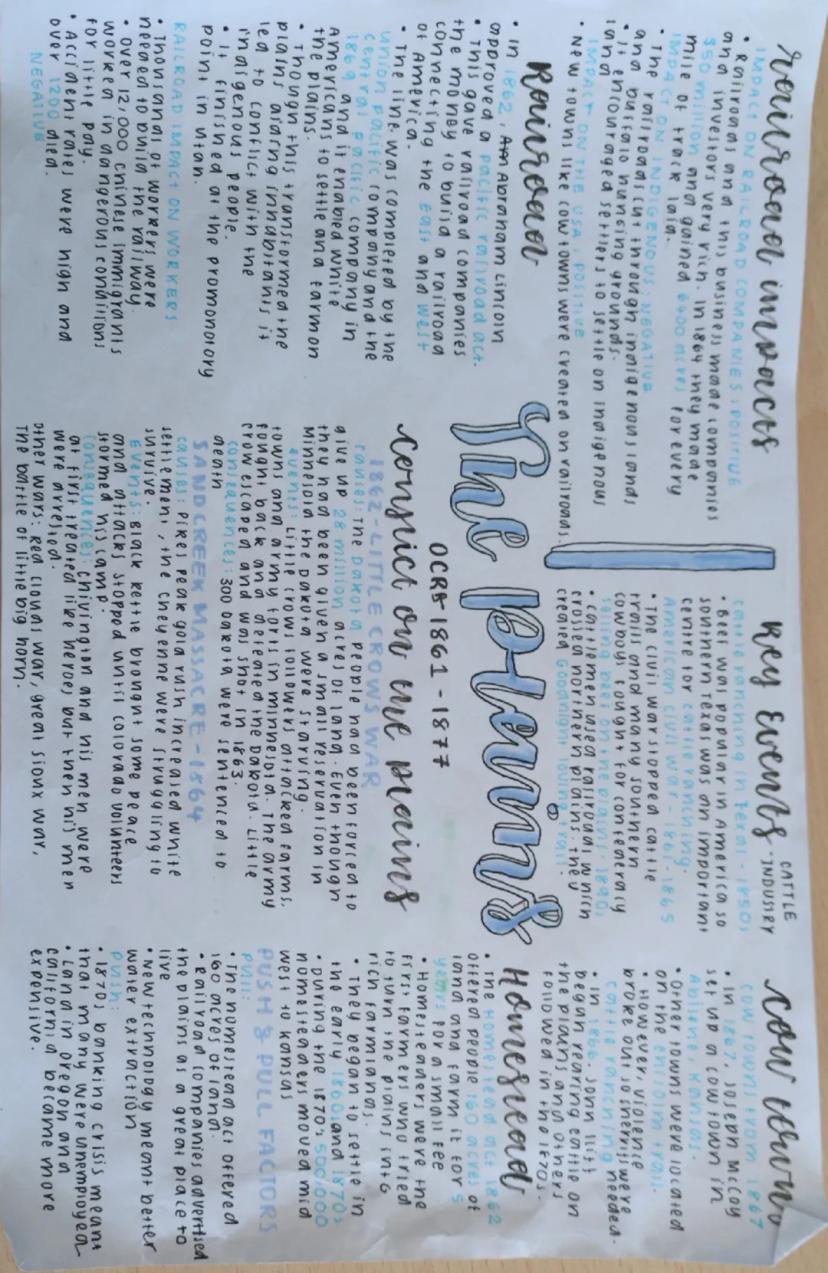 railroad impacts
IMPACT ON RAILROAD COMPANIES: POSITIVE
• Railroads and this business made companies
and investors very rich. In 1869 they made
$50 million and gained 6400 acres for every
mile of track laid.
IMPACT ON INDIGENOUS: NEGATIVE
• The railroads cut through indigenous lands
and buffalo hunting grounds.
• It encouraged settlers to settle on indigenous
land
IMPACT ON THE USA: POSITIVE
• New towns like cow towns were created on railroads.
Railroad
• In 1862, Abraham Lincoln
approved a pacific railroad act.
• This gave railroad companies
the money to build a railroad
connecting the east and west
of America.
• The line was completed by the
union pacific company and the
central pacific company in
1869 and it enabled white
Americans to settle and farm on
the plains.
• Though this transformed the
plains among inhabitants it
led to conflict with the
indigenous people.
• It finished at the promonotory
point in utah.
RAILROAD IMPACT ON WORKERS
• Thousands of workers were
needed to build the railway.
• Over 12,000 chinese immigrants
worked in dangerous conditions
for little pay.
• Accident rates were high and
over 1200 died.
NEGATIVE
The plains
OCRB-1861-1877
conflict on the plains
1862-LITTLE CROWS WAR
causes: The Dakota people had been forced to
give up 28 million acres of land. Even though
they had been given a small reservation in
Minnesota the Dakota were starving.
events: Little crows followers attacked farms,
towns and army forts in minnesota. The army
fought back and defeated the Dakota. Little
crow escaped and was shot in 1863.
consequences: 300 Dakota were sentenced to
death
SANDCREEK MASSACRE-1864
causes: Pikes peak gold rush increased white
settlement, the cheyenne were struggling to
survive.
Events: Black kettle brought some peace
and attacks stopped until colorado volunteers
stormed his camp.
consequences: chivington and his men were
at first treated like heroes but then his men
were arrested.
other wars: Red clouds war, great sioux war,
The battle of little big horn.
Key Events
CATTLE
INDUSTRY
cattle ranching in texas - 1850s
• Beef was popular in America so
southern Texas was an important
centre for cattle ranching.
American civil war - 1861-1865
• The civil war stopped cattle
trails and many southern
cowboys fought for confederacy
• cattlemen used railroads which
crossed northern plains they
created Goodnight loving trail.
cow towns
cow towns from 1867
• In 1867, Joseph McCoy
set up a cow town in
Abilene, Kansas.
• Other towns were located
on the chisholm trail.
• However, violence
broke out so sheriffs were
needed.
cattle ranching
• In 1866, John Iliff
began rearing cattle on
the plains and others
followed in the 1870s.
Homestead
• The Homestead act 1862
offered people 160 acres of
land and farm it for 5
years for a small fee
• Homesteaders were the
first farmers who tried
to turn the plains into
rich farmlands.
• They began to settle in
the early 1860s and 1870s
• During the 1870s, 500,000
homesteaders moved mid
west to kansas
PUSH & PULL FACTORS
pull:
• The homestead act offered
160 acres of land.
• Railroad companies advertised
the plains as a great place to
live
• New technology meant better
water extraction
push:
• 1870s banking crisis meant
that many were unemployed
• Land in oregon and
california became more
expensive.